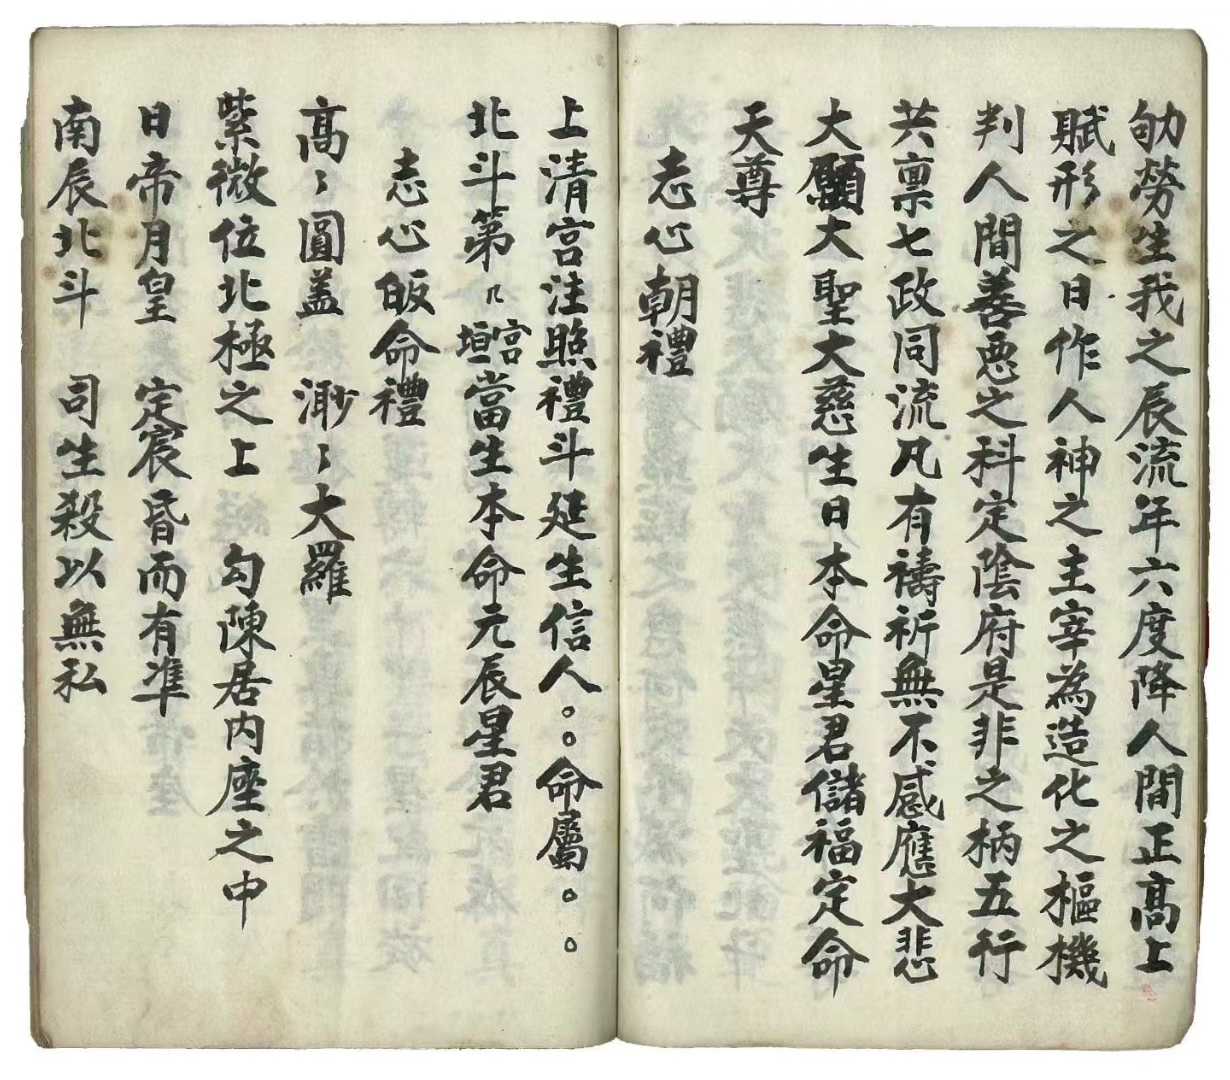 劬勞生我之辰流年六度降人間正高上
賦形之日作人神之主宰為造化之樞機
判人間善惡之科定陰府是非之柄五行
共禀七政同流凡有禱祈無不感應大悲
大願大聖大慈生日本命星君儲福定命
天尊
志心朝禮
上清宮注照禮斗延生信人。。命屬。。
北斗第几宮垣當生本命元辰星君
志心皈命禮
高〻圓盖 渺〻大羅
紫微位北極之上 勾陳居内座之中
日帝月皇 定宸昏而有準
南辰北斗 司生殺以無私